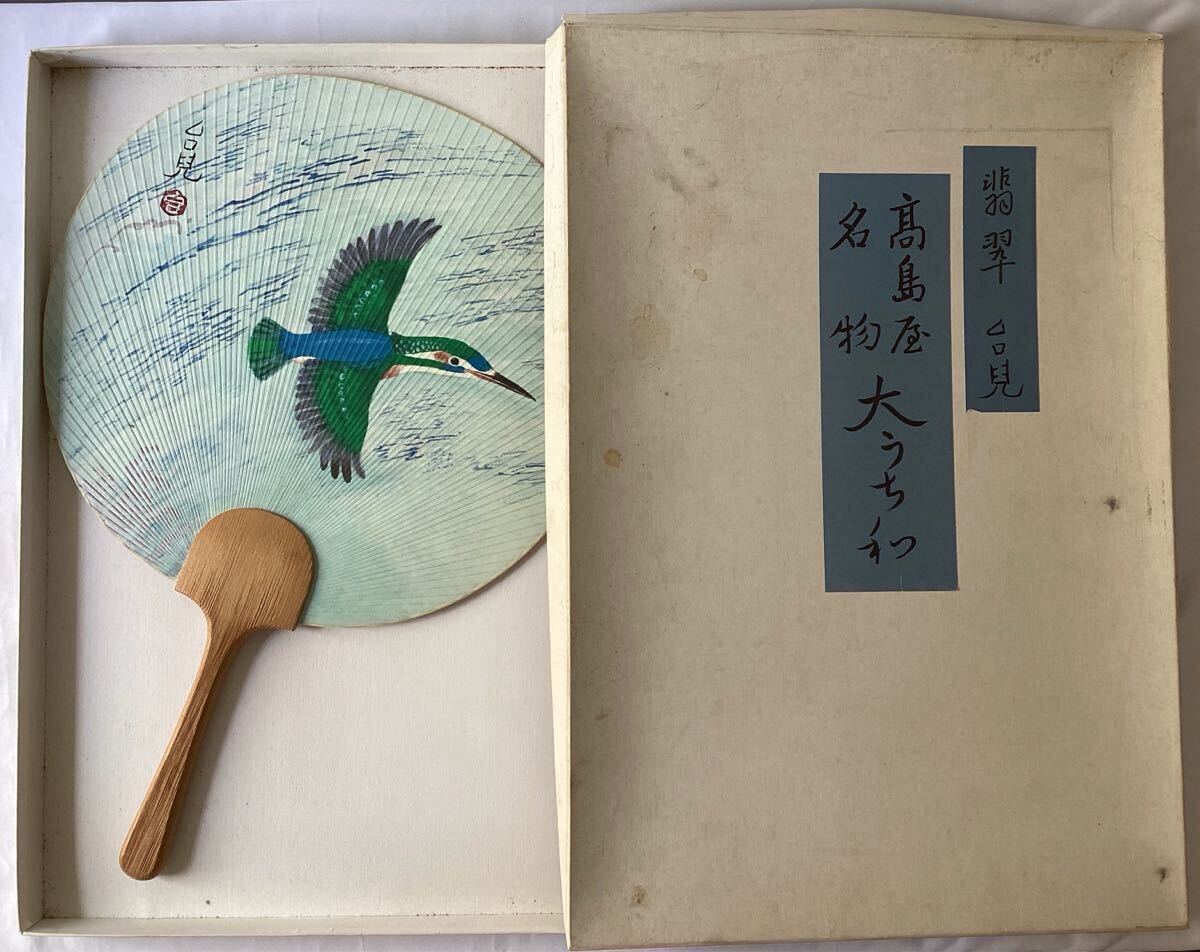 台児
翡翠 台児
髙島屋
名物
大うち和